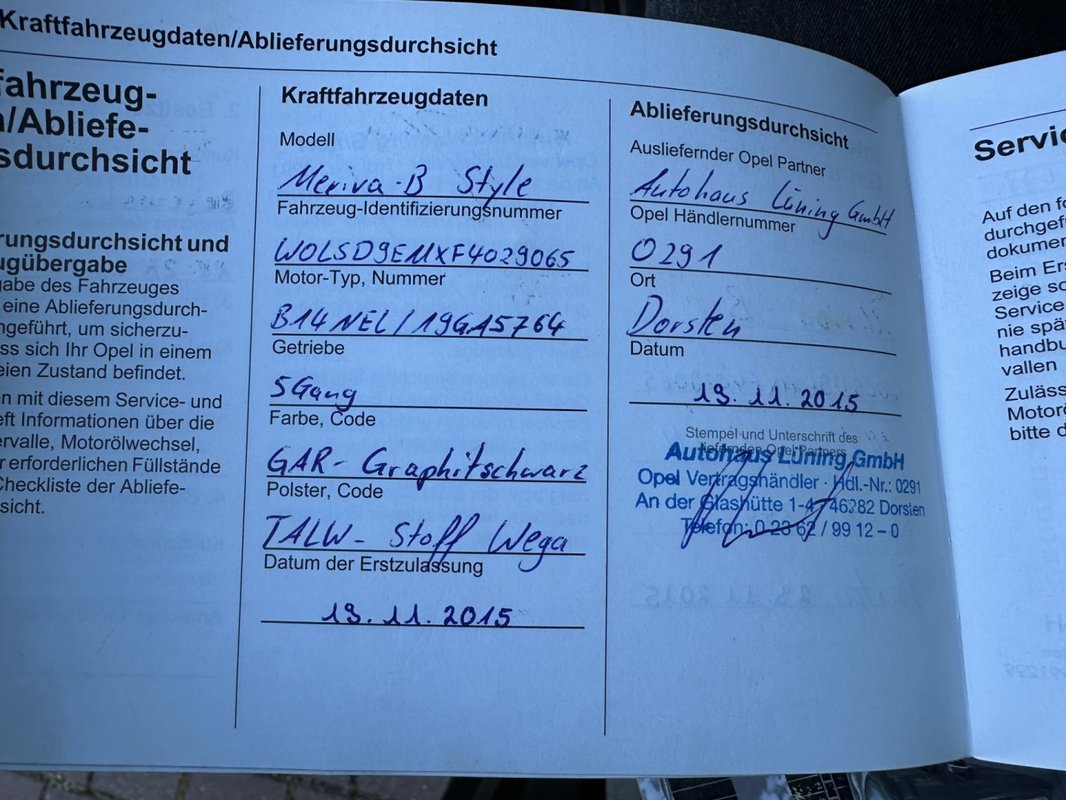 Kraftfahrzeugdaten/Ablieferungsdurchsicht
fahrzeug-
n/Abliefe-
sdurchsicht
rungsdurchsicht und
ugübergabe
gabe des Fahrzeuges
eine Ablieferungsdurch-
ngeführt, um sicherzu-
ss sich Ihr Opel in einem
eien Zustand befindet.
en mit diesem Service- und
eft Informationen über die
ervalle, Motorölwechsel,
r erforderlichen Füllstände
Checkliste der Abliefe-
sicht.
Kraftfahrzeugdaten
Modell
Meriva-B Style
Fahrzeug-Identifizierungsnummer
WOLSD9EMXF4029065
Motor-Typ, Nummer
B14NEL/19GA5764
Getriebe
5Gang
Farbe, Code
GAR- Graphitschwarz
Polster, Code
TALW- Stoff Wega
Datum der Erstzulassung
19.11.2015
Ablieferungsdurchsicht
Ausliefernder Opel Partner
Autohaus Lüning GmbH
Opel Händlernummer
0291
Ort
Dorsten
Datum
19.11.2015
Stempel und Unterschrift des
liefernden Opel Partners
Autohaus Lüning GmbH
Opel Vertragshändler · Hdl.-Nr.: 0291
An der Glashütte 1-4 · 46282 Dorsten
Telefon: 0 23 62 / 99 12 – 0
Servic
Auf den fo
durchgef
dokumen
Beim Ers
zeige so
Service
nie spät
handbu
vallen
Zuläss
Motorö
bitte d